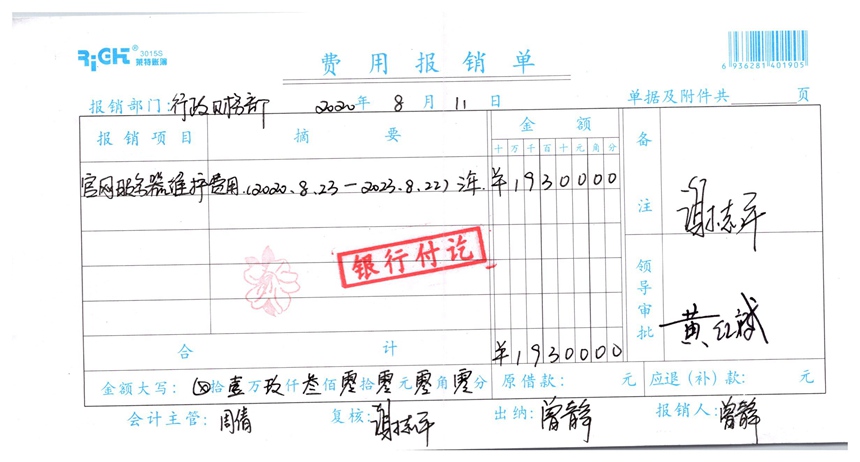 RiGHT® 3015S
莱特账簿
费用报销单
6 936281 401905
报销部门:行政财务部 2020年 8月 11日 单据及附件共 页
报销项目 摘要 金额 备注
十万千百十元角分
官网服务器维护费用.(2020.8.23—2023.8.22) ¥1930000
谢志平
银行付讫
领导审批
黄红斌
合计 ¥1930000
金额大写: ⊗拾壹万玖仟叁佰零拾零元零角零分 原借款: 元 应退(补)款: 元
会计主管:周倩 复核:谢志平 出纳:曾静 报销人:曾静